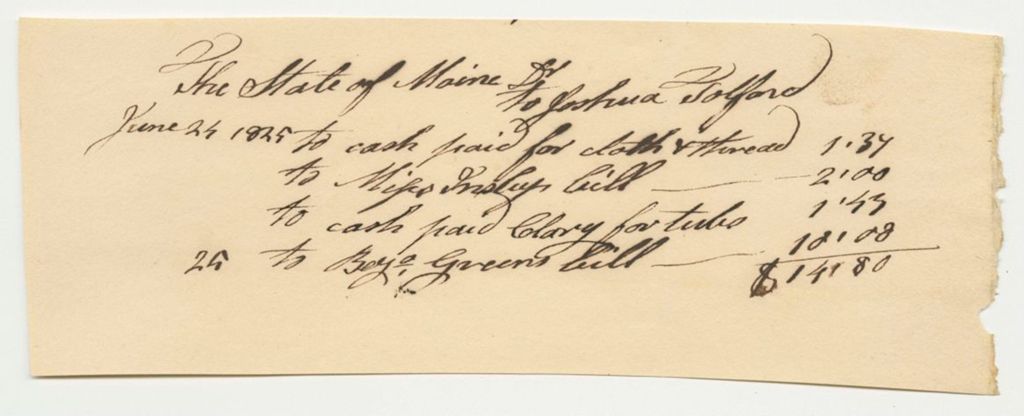 The State of Maine Dr
to Joshua Tolford
June 24 1825 to cash paid for cloth & thread 1.37
to Miss bill 2.00
to cash paid Clary for tubs 1.43
25 to Benja. Greens bill 10.00
$14.80